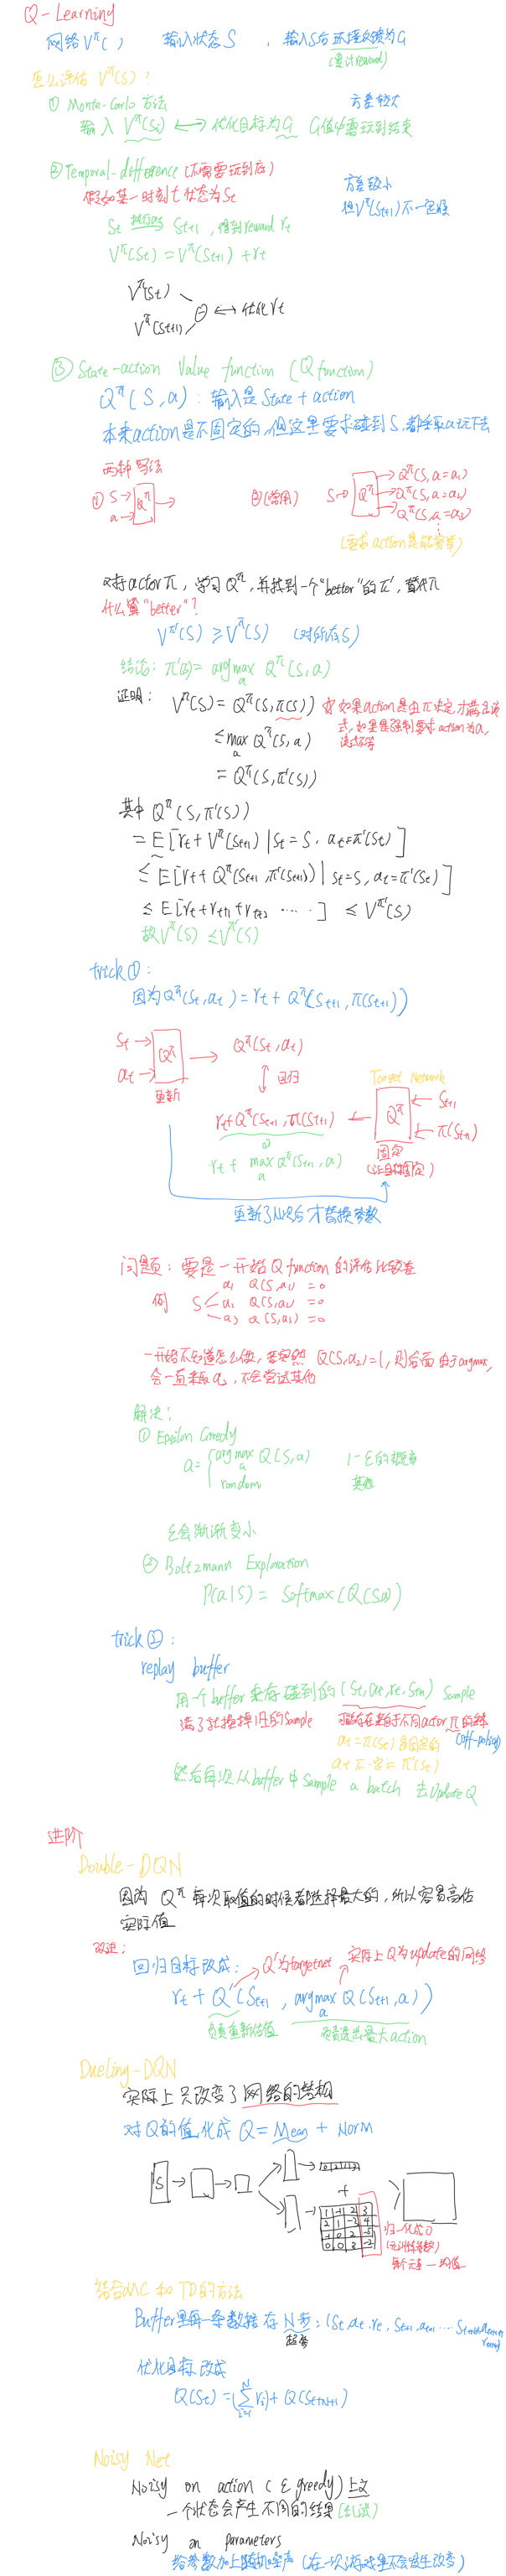 Q-Learning
网络 V^π( )  输入状态 S , 输入S后 环境反馈为G
(累计reward)
怎么评估 V^π(S)?
① Monte-Carlo 方法  方差较大
输入 V^π(Si) ⟷ 优化目标为G  G值必需玩到结束
② Temporal-difference (不需要玩到底)
假如某一时刻t 状态为St  方差较小
但V^π(St+1)不一定准
St → St+1 , 得到reward rt
V^π(St) = V^π(St+1) + rt
V^π(St)
⊖ ⟷ 优化rt
V^π(St+1)
③ State-action Value function (Q function)
Q^π(S,a): 输入是 State + action
本来action是不固定的,但这里要求碰到S,都采取a玩下去
两种写法
① S → Q^π →
a →
②(常用) S → Q^π → Q^π(S,a=a1)
→ Q^π(S,a=a2)
→ Q^π(S,a=a3)
(要求 action是能穷举)
对于actor π, 学习 Q^π, 并找到一个"better"的π', 替代π
什么算"better"?
V^π'(S) ≥ V^π(S) (对所有S)
结论: π'(S) = argmax_a Q^π(S,a)
证明: V^π(S) = Q^π(S,π(S)) 如果action是由π决定,才满足该
≤ max_a Q^π(S,a) 式,如果是强制要求action为a,
该式不等
= Q^π(S,π'(S))
其中 Q^π(S,π'(S))
= E[rt + V^π(St+1) | St=S, at=π'(St)]
≤ E[rt + Q^π(St+1,π'(St+1)) | St=S, at=π'(St)]
≤ E[rt+rt+1+rt+2 ....] ≤ V^π'(S)
故 V^π(S) ≤ V^π'(S)
trick①:
因为Q^π(St,at) = rt + Q^π(St+1, π(St+1))
St → Q^π → Q^π(St,at)
at →
更新 回归
Target Network
rt+Q^π(St+1,π(St+1)) ← Q^π ← St+1
← π(St+1)
固定
rt + max_a Q^π(St+1,a) (让目标固定)
更新了N次后才替换参数
问题: 要是一开始 Q function 的评估比较差
例 S a1 Q(S,a1) = 0
a2 Q(S,a2) = 0
a3 Q(S,a3) = 0
一开始不知道怎么做, 若突然 Q(S,a2)=1, 则后面由于argmax,
会一直采取a2, 不会尝试其他
解决:
① Epsilon Greedy
a = { argmax_a Q(S,a)  1-ε的概率
random  其他
ε会渐渐变小
② Boltzmann Exploration
P(a|S) = Softmax(Q(S,a))
trick②:
replay buffer
用一个buffer来存碰到的(St,at,rt,St+1) sample
满了就換掉旧的Sample
at=π(St)是固定的 (off-policy)
at不一定=π'(St)
然后每次从buffer中 Sample a batch 去Update Q
进阶
Double-DQN
因为 Q^π 每次取值的时候都选择最大的, 所以容易高估
实际值
改进:
回归目标改成: Q'为targetnet 实际上Q为update的网络
rt + Q'(St+1, argmax_a Q(St+1,a))
负责重新估值 负责选出最大action
Dueling-DQN
实际上只改变了网络的结构
对Q的值化成 Q = Mean + Norm
S → → 
+
归一化为0
每个元素 - 均值
结合MC 和 TD的方法
Buffer里每一条数据 存 N步: (St,at,rt,St+1,at+1 ....
超参
优化目标改成
Q(St) = (Σ ri) + Q(St+N+1)
Noisy Net
Noisy on action (ε greedy) 上文
一个状态会产生不同的结果(乱试)
Noisy on parameters
给参数加上随机噪声 (在一次游戏里不会发生改变)